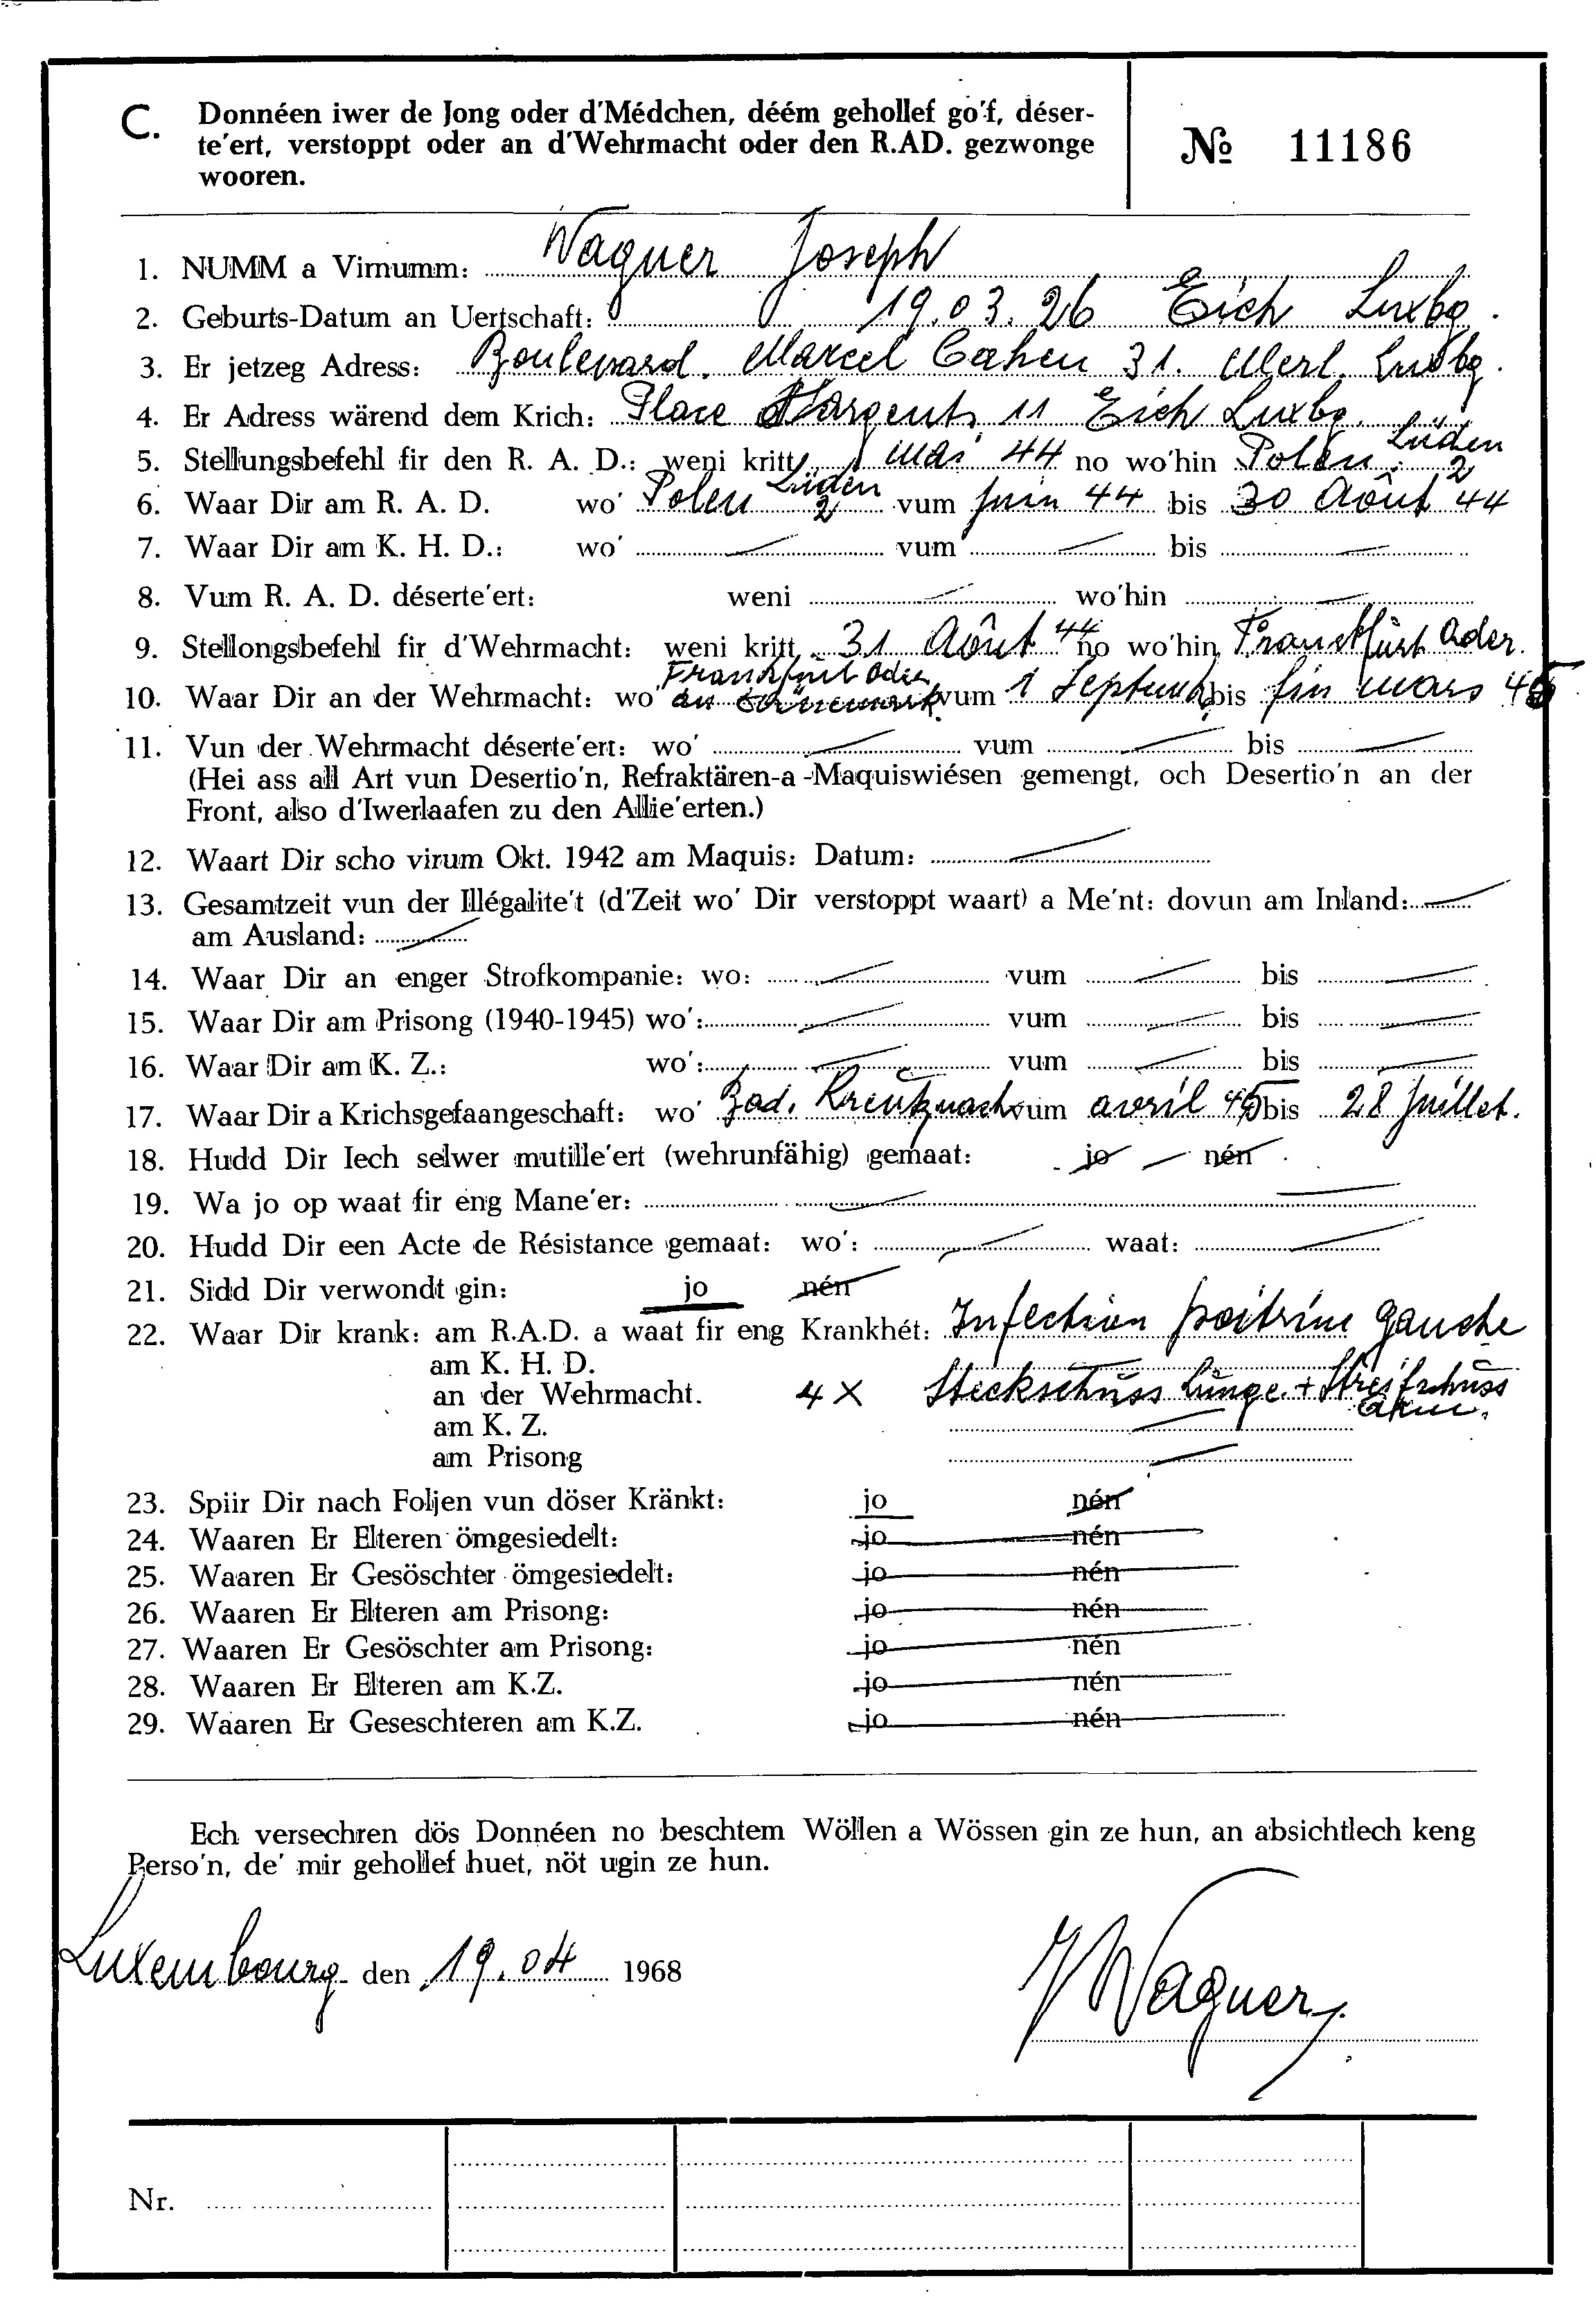 C. Donnéen iwer de Jong oder d'Médchen, déém gehollef go'f, déser-
te'ert, verstoppt oder an d'Wehrmacht oder den R.AD. gezwonge
wooren.
№ 11186
1. NUMM a Virnumm: Wagner Joseph
2. Geburts-Datum an Uertschaft: 19.03.26 Eich Luxbg.
3. Er jetzeg Adress: Boulevard. Marcel Cahen 31. Merl. Luxbg.
4. Er Adress wärend dem Krich: Place d'Argent, 11 Eich Luxbg.
5. Stellungsbefehl fir den R. A. D.: weni kritt 1 Mai 44 no wo'hin Polen. Lüden 2
6. Waar Dir am R. A. D. wo' Polen Lüden 2 vum Juin 44 bis 30 Aôut 44
7. Waar Dir am K. H. D.: wo' — vum — bis —
8. Vum R. A. D. déserte'ert: weni — wo'hin —
9. Stellongsbefehl fir d'Wehrmacht: weni kritt 31 Aôut 44 no wo'hin Frankfürt Oder.
10. Waar Dir an der Wehrmacht: wo' Frankfürt Oder vum 1 Septemb bis fin mars 45
11. Vun der Wehrmacht déserte'ert: wo' — vum — bis —
(Hei ass all Art vun Desertio'n, Refraktären-a-Maquiswiésen gemengt, och Desertio'n an der
Front, also d'Iwerlaafen zu den Allie'erten.)
12. Waart Dir scho virum Okt. 1942 am Maquis: Datum: —
13. Gesamtzeit vun der Illégalite't (d'Zeit wo' Dir verstoppt waart) a Me'nt: dovun am Inland: —
am Ausland: —
14. Waar Dir an enger Strofkompanie: wo: — vum — bis —
15. Waar Dir am Prisong (1940-1945) wo': — vum — bis —
16. Waar Dir am K. Z.: wo': — vum — bis —
17. Waar Dir a Krichsgefaangeschaft: wo' Bad. Kreuznach vum avril 45 bis 28 Juillet.
18. Hudd Dir Iech selwer mutille'ert (wehrunfähig) gemaat: jo — nén
19. Wa jo op waat fir eng Mane'er: —
20. Hudd Dir een Acte de Résistance gemaat: wo': — waat: —
21. Sidd Dir verwondt gin: jo nén
22. Waar Dir krank: am R.A.D. a waat fir eng Krankhét: Infection poitrine gauche
am K. H. D.
an der Wehrmacht. 4 X Steckschüss Lunge + Streifschüss
am K. Z. —
am Prisong —
23. Spiir Dir nach Foljen vun döser Kränkt: jo nén
24. Waaren Er Elteren ömgesiedelt: jo nén
25. Waaren Er Gesöschter ömgesiedelt: jo nén
26. Waaren Er Elteren am Prisong: jo nén
27. Waaren Er Gesöschter am Prisong: jo nén
28. Waaren Er Elteren am K.Z. jo nén
29. Waaren Er Geseschteren am K.Z. jo nén
Ech versechren dös Donnéen no beschtem Wöllen a Wössen gin ze hun, an absichtlech keng
Perso'n, de' mir gehollef huet, nöt ugin ze hun.
Luxembourg den 19.04 1968
J Wagner
Nr.